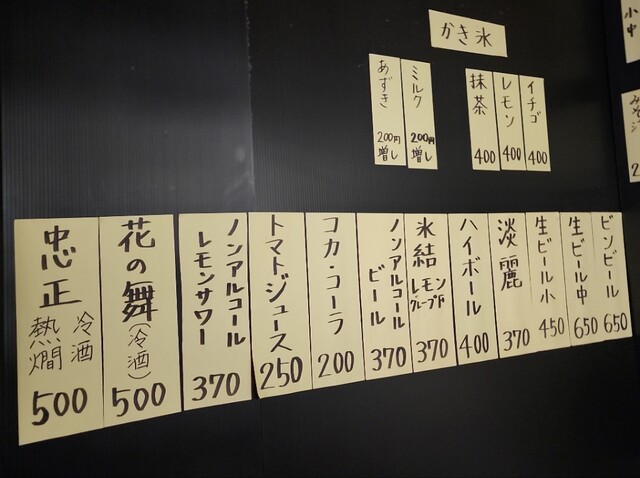 かき氷
イチゴ
400
レモン
400
抹茶
400
ミルク
200円
増し
あずき
200円
増し
小
中
ビンビール
650
生ビール中
650
生ビール小
450
淡麗
370
ハイボール
400
氷結
レモン
グレープF
370
ノンアルコール
ビール
370
コカ・コーラ
200
トマトジュース
250
ノンアルコール
レモンサワー
370
花の舞
(冷酒)
500
忠正
冷酒
熱燗
500